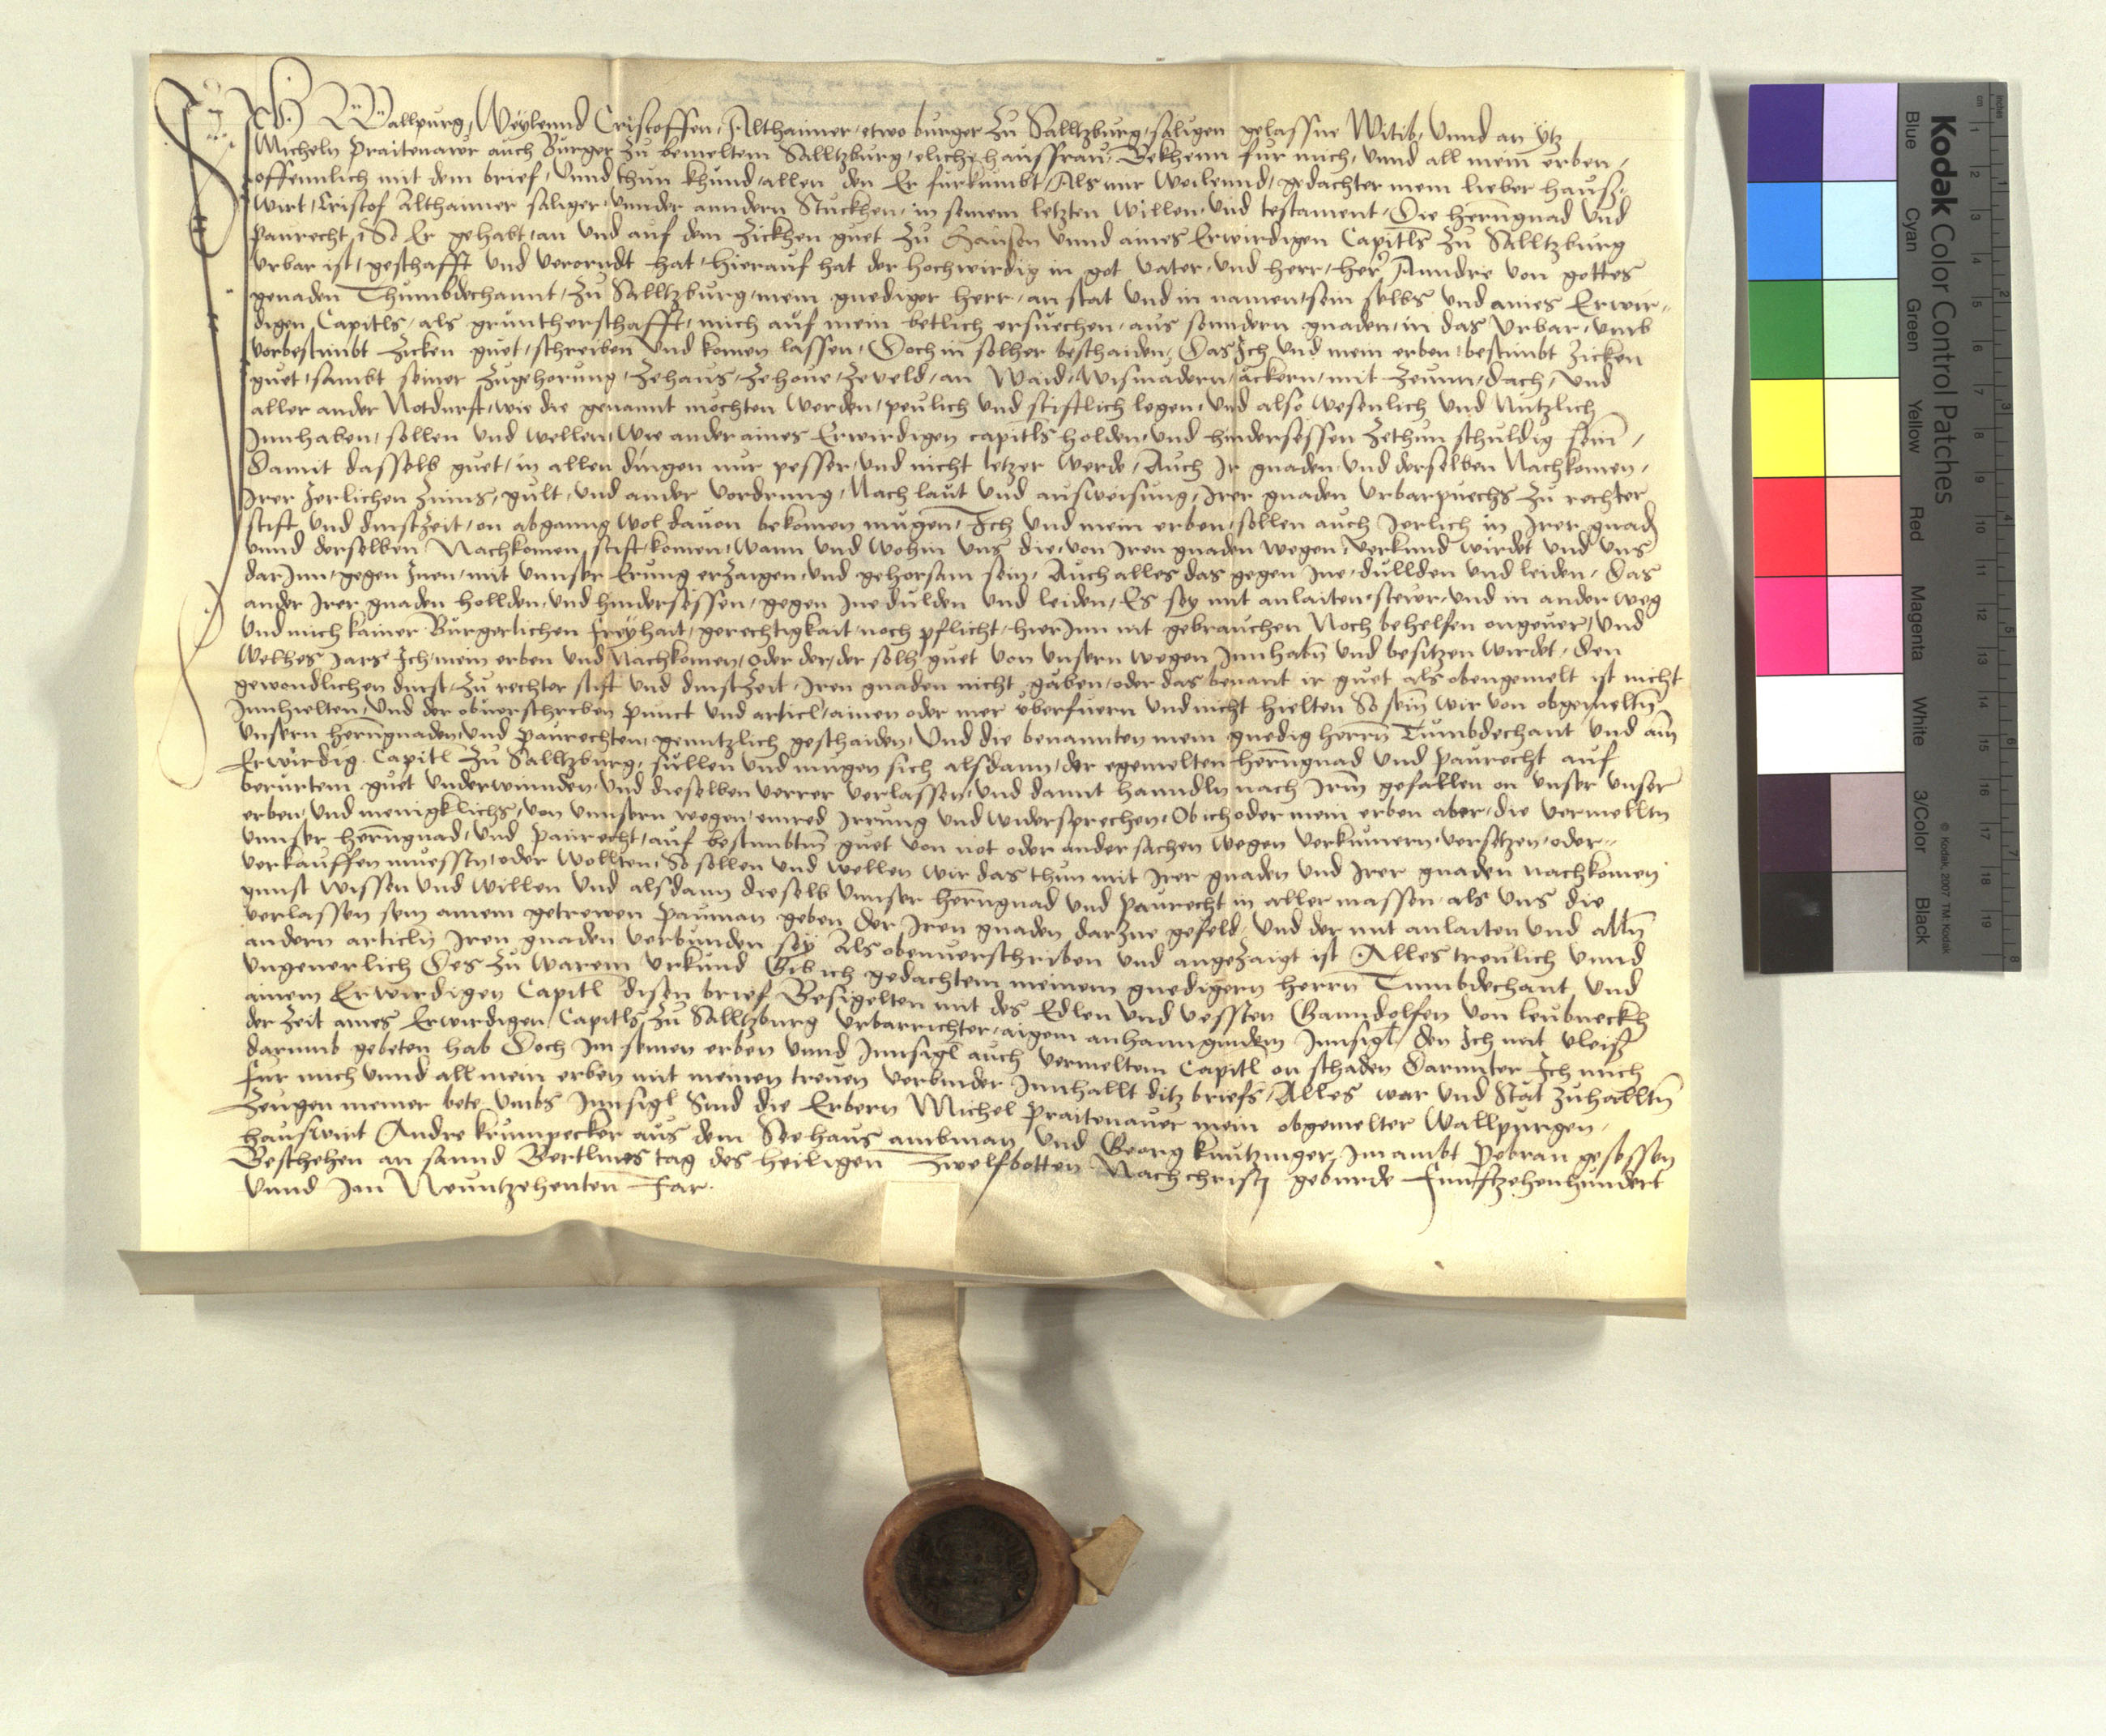 Ich Wallpurg, Weylennd Cristoffen, Althaimer, etwo burger zu Salltzburg, saligen gelassne Witib, Vnnd an ytz
Micheln Praitenawer auch Burger zu bemeltem Salltzburg, eliche haussfrau, Bekhenn fur mich, vnnd all mein erben,
offennlich mit dem brief, Vnnd thun khund, allen den Er furkumbt, Als mir Weilennd, gedachter mein lieber hauß,
Wirt, Cristof Althaimer saliger, vnnder anndern Stuckhen, in seinem letzten willen, vnd testament, Die herrngnad vnd
Paurecht, So Er gehabt, an vnd auf dem Zickhen guet zu Hausen vnnd aines Erwirdigen Capitls zu Salltzburg
Vrbar ist, geschafft vnd verorndt hat, hierauf hat der hochwirdig in got vater, vnd herr, her Anndre von gottes
genaden Thumbdechannt, zu Salltzburg, mein gnediger herr, an stat vnd in namen, sein selbs vnd aines Erwir,,
digen Capitls, als gruntherschafft, mich auf mein betlich ersuechen, aus sonndern gnaden, in das Vrbar, vmb
vorbestimbt Zicken guet, schreiben vnd komen lassen, Doch in solher beschaiden, Das Ich vnd mein erben, bestimbt Zicken
guet, sambt seiner zugehorung, zehaus, zehoue, zeueld, an Waid, Wismadern, äckern, mit zeunn, dach, vnd
aller ander Notdurft, wie die genannt mochten werden, peulich vnd stiftlich legen, vnd also wesenlich vnd Nutzlich
Innhaben, sollen vnd wellen, Wie ander aines Erwirdigen capitls holden, vnd hindersessen zethun schuldig sein,
Damit dasselb guet, in allen dingen nur pesser, vnd nicht letzer werde, Auch Ir gnaden vnd derselben Nachkomen,
Irer Jerlichen zinns, gult, vnd ander vordrung, Nach laut vnd ausweisung, Irer gnaden vrbarpuechs zu rechter
stift, vnd dinstzeit, on abganng wol dauon bekomen mugen, Ich vnd mein erben, sollen auch Jerlich in Irer gnad
vnnd derselben Nachkomen, stift komen, wann vnd wohin vns die, von Iren gnaden wegen, verkund wirdet vnd vns
darInn, gegen Inen, mit vnnser Erung erzaigen, vnd gehorsam sein, Auch alles das gegen Ine, dullden vnd leiden, Das
ander Irer gnaden hollden, vnd hindersessen, gegen Ine dulden vnd leiden, Es sey mit anlaiten, stewr, vnd in ander weg
Vnd mich kainer Burgerlichen freyhait, gerechtigkait, noch pflicht, hierInn nit gebrauchen Noch behelfen ongeuer, Vnd
Welhes Jars Ich, mein erben vnd Nachkomen, oder der, der solh guet von vnsern wegen Innhabn vnd besitzen wirdet, den
gewondlichen dinst, zu rechter stift vnd dinstzeit, Iren gnaden nicht gäben, oder das benant ir guet, als obengemelt ist nicht
Innhielten, Vnd der obuerschriben punct vnd articl, ainen oder mer vberfuern vnd nicht hielten So sein wir von obgemeltn
vnsern herrngnaden, vnd Paurechten, genntzlich geschaiden, Vnd die benannten mein gnedig herrn Tumbdechant vnd ain
Erwirdig Capitl zu Salltzburg, sullen vnd mugen sich alsdann, der egemelten herrngnad vnd Paurecht auf
berurtem guet vnderwinnden, Vnd dieselben verrer verlassen, vnd damit hanndln nach Irm gefallen on vnser vnser
erben, vnd menigklichs, von vnnsern wegen, einred Irrung vnd widersprechen, Ob ich oder mein erben aber, die vermelltn
vnnser herrngnad, vnd Paurecht, auf bestimbtm guet von not oder ander sachen wegen verkumern, versetzen, oder,,
verkauffen muessten, oder wollten, So sollen vnd wellen wir das thun mit Irer gnaden vnd Irer gnaden nachkomen
gunst wissen vnd willen vnd alsdann dieselb vnnser herrngnad vnd Paurecht in aller massen, als vns die
verlassen sein ainem getrewen Pauman geben, der Iren gnaden darzue gefeld, Vnd der mit anlaiten vnd alln
andern articln Iren gnaden verbunden sey Als obenuerschriben vnd angezaigt ist Alles treulich vnnd
vngeuerlich Des zu warem vrkund Gib ich gedachtem meinem gnedigern herrn Tumbdechant vnd
ainem Erwirdigen Capitl disen brief Besigelten mit des Edlen vnd vessten Ganndolfen von keubneckh
der zeit aines Erwirdigen Capitls zu Salltzburg Vrbarrichter, aigem anhanngundem Innsigl, den Ich mit vleiß
darumb gebeten hab Doch Im seinen erben vnnd Innsigl auch vermeltem Capitl on schaden Darunter Ich mich
fur mich vnnd all mein erben mit meinen treuen verbinde Innhallt ditz briefs, Alles war vnd Stät zuhalltn
Zeugen meiner bete vmbs Innsigl Sind die Erbern Michel Praitenauer mein obgemelter Wallpurgen,
hauswirt Andre krumpecker aus dem Seehaus ambman vnd Georg knutzinger, Im ambt Pebran gesessen
Beschehen an sannd Bertlmes tag des heiligen Zwelfbotten Nach christi geburde Funftzehenhundert
vnnd Im Neuntzehenten Jar.
Kodak Color Control Patches
Blue Cyan Green Yellow Red Magenta White 3/Color Black
© Kodak, 2007 TM: Kodak
cm 1 2 3 4 5 6 7 8 9 10 11 12 13 14 15 16 17 18 19
inches 1 2 3 4 5 6 7 8